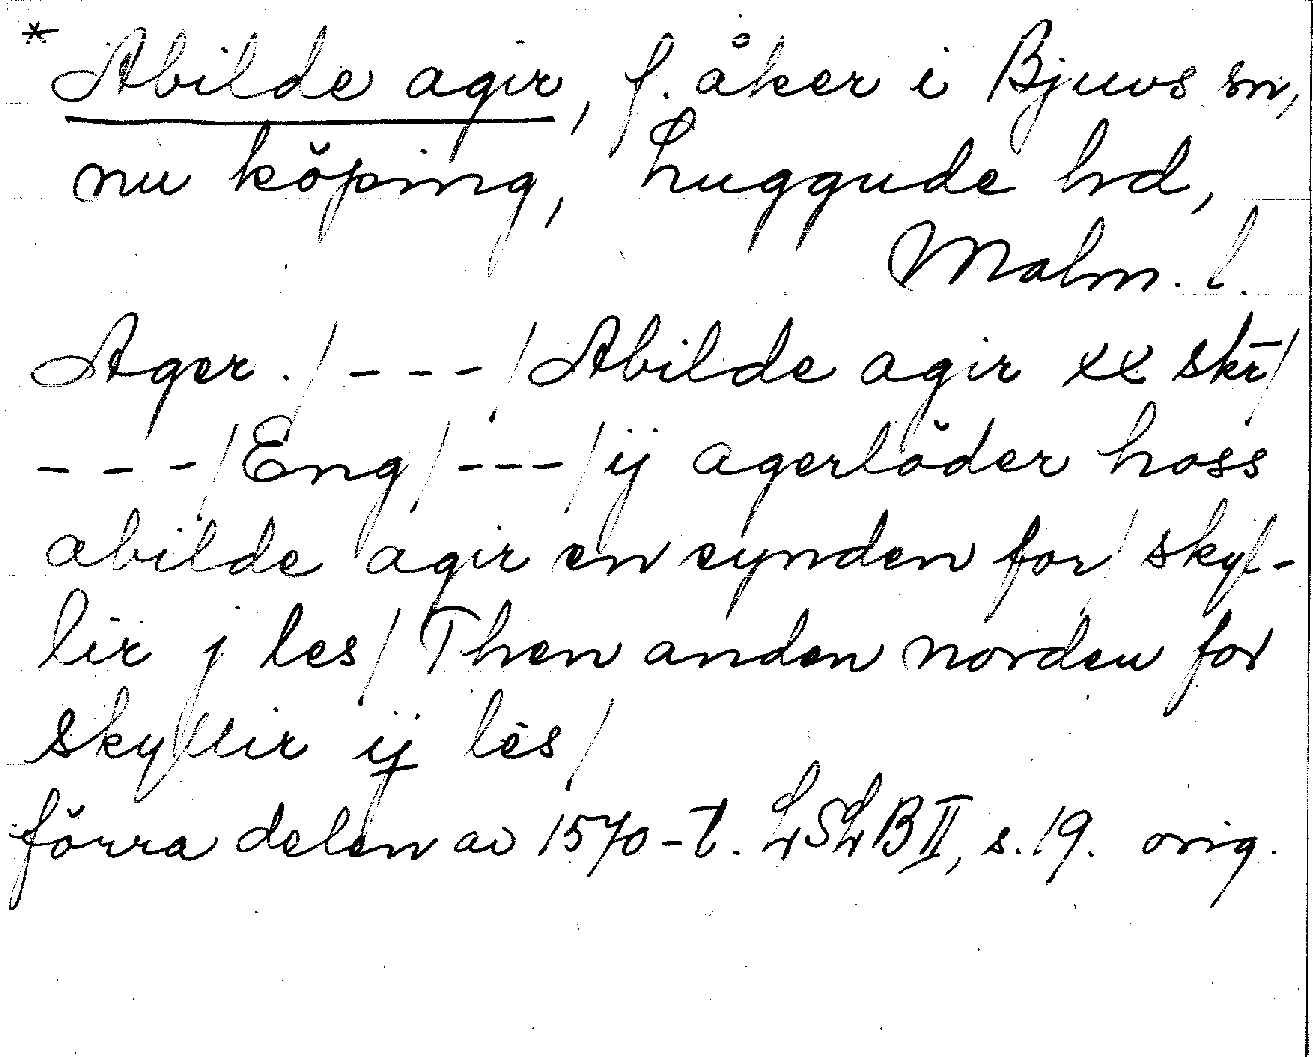 * Abilde agir, f. åker i Bjuvs sn,
nu köping, Luggude hd,
Malm. l.
Ager. / --- / Abilde agir xx skr̄ /
--- / Eng / --- / ij agerlöder hoss
abilde agir en synden for / skyl-
lir j les / Then anden norden for
skyllir ij lês /
förra delen av 1570-t. LSLB II, s. 19. orig.